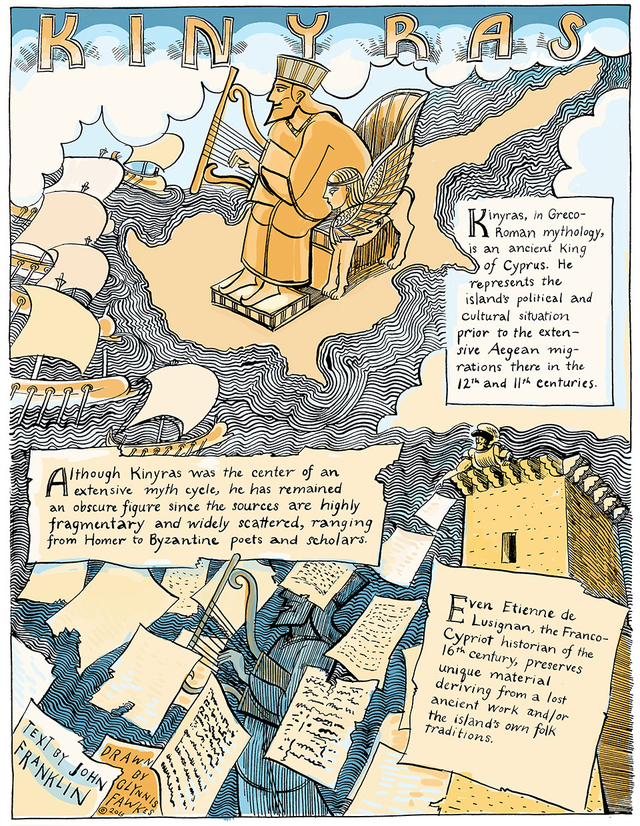 KINYRAS
Kinyras, in Greco-
Roman mythology,
is an ancient King
of Cyprus. He
represents the
island's political and
cultural situation
prior to the exten-
sive Aegean mig-
rations there in the
12th and 11th centuries.
Although Kinyras was the center of an
extensive myth cycle, he has remained
an obscure figure since the sources are highly
fragmentary and widely scattered, ranging
from Homer to Byzantine poets and scholars.
Even Etienne de
Lusignan, the Franco-
Cypriot historian of the
16th century, preserves
unique material
deriving from a lost
ancient work and/or
the island's own folk
traditions.
TEXT BY JOHN
FRANKLIN
DRAWN
BY
GLYNNIS
FAWKES